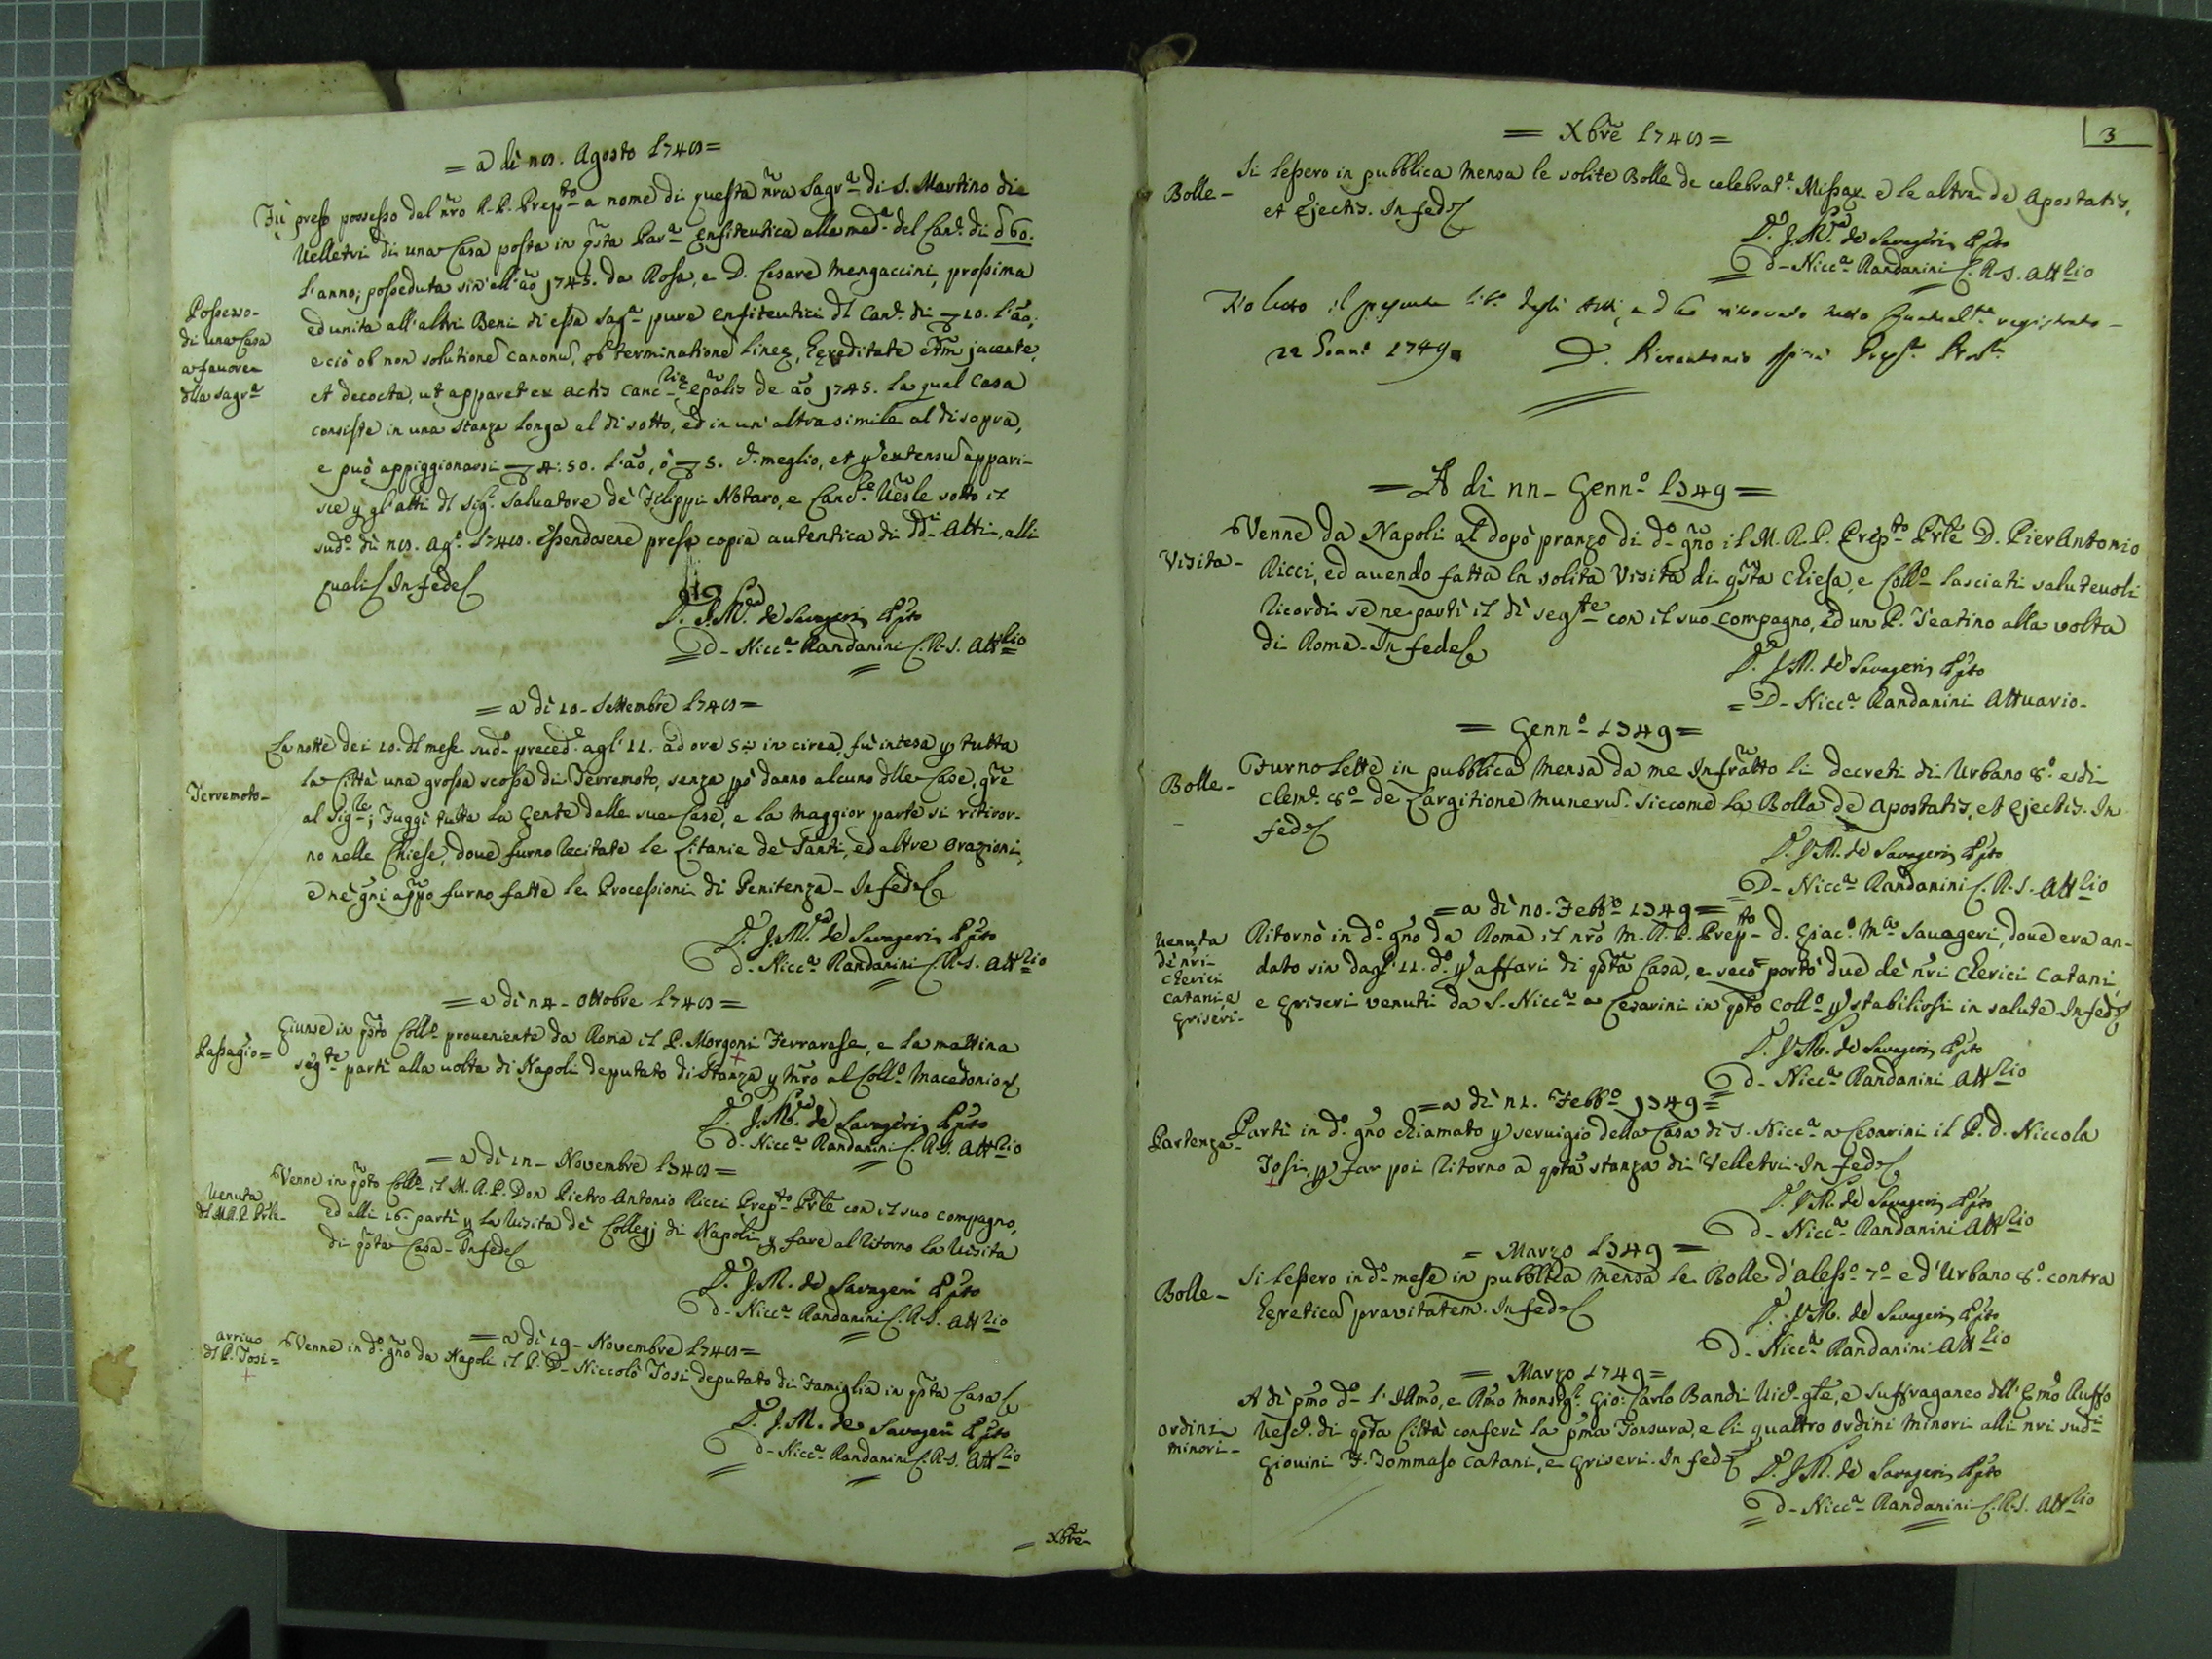 = a di 28. Agosto 1748 =
Fù preso possesso dal nrõ R. P. Prep.to a nome di questa nrã Sagr.a di S. Martino di
Velletri di una Casa posta in qsta Par.a enfiteutica alla med.a del Can.e di 60.
l'anno; posseduta sin' all' aõ 1745. da Rosa, e D. Cesare Mengaccini, prossima
Possesso-
di una Casa
a favore
dlla Sagr.a
ed unita all' altri Beni di essa Sag.a pure enfiteutici dl Can.e di 10. l'aõ;
e ciò ob non solutione canonis, ob terminatione lineę, hęreditate etm̃ jacente,
et decocta, ut apparet ex actis Canc.lię epãlis de aõ 1745. la qual Casa
consiste in una stanza longa al di sotto, ed in un' altra simile al di sopra,
e può appiggionarsi 4:50. l'aõ, ò 5. meglio, et p extensũ appari-
sce p gl' atti dl Sig.r Salvatore de Filippi Notaro, e Canc.re Vesle sotto il
sud.o dì 28. Ag.o 1748. Essendosene presa copia autentica di dd.i Atti, alli
quali In fede
D. J. M.a de Savageri Ppto
D. Nicc.a Randanini C. R. S. Att.rio
= a dì 10- Settembre 1748 =
La notte dei 10. dl mese sud.o preced.e agl' 11. ad ore 5 in circa, fù intesa p tutta
Terremoto-
la Città una grossa scossa di Terremoto, senza pò danno alcuno dlle Case, grẽ
al Sig.re; Fuggì tutta la Gente dalle sue Case, e la maggior parte si ritiror-
no nelle Chiese, dove furno recitate le Litanie de Santi, ed altre orazioni,
e nè gni apppo furno fatte le Processioni di Penitenza- In fede
D. J. M.a de Savageri Ppto
D. Nicc.a Randanini C. R. S. Att.rio
= a dì 24- Ottobre 1748 =
Passagio=
Giunse in qsto Coll.o proveniente da Roma il P. Morgoni Ferrarese, e la mattina
seg.te partì alla volta di Napoli deputato di Stanza p Mrõ al Coll.o Macedonio
D. J. M.a de Savageri Ppto
D. Nicc.a Randanini C. R. S. Att.rio
= a dì 12- Novembre 1748 =
Venuta
dl M.R.P. Prle-
Venne in qsto Coll.o il M. R. P. Don Pietro Antonio Ricci Prep.to Prle con il suo compagno,
ed alli 16. partì p la Visita de Collegj di Napoli, p fare al ritorno la Visita
di qsta Casa- In fede
D. J. M. de Savageri Ppto
D. Nicc.a Randanini C. R. S. Att.rio
= a dì 19- Novembre 1748 =
Arrivo
dl P. Tosi=
Venne in d.o gno da Napoli il P. D. Niccolò Tosi deputato di Famiglia in qsta Casa
D. J. M. de Savageri Ppto
D. Nicc.a Randanini C. R. S. Att.rio
= Xbrẽ
3
= Xbrẽ 1748 =
Bolle-
Si lessero in pubblica Mensa le solite Bolle de celebrat.e Missar. e le altre de Apostatis,
et Ejectis. In fede
D. J. M.a de Savageri Ppto
D. Nicc.a Randanini C. R. S. Att.rio
Hò letto il presente lib.o degli Atti, ed ho ritrovato tutto registrato-
22 Genn.o 1749.
D. Pierantonio Ricci Prep.to Prov.le
= A dì 22- Genn.o 1749 =
Visita-
Venne da Napoli al dopò pranzo di d.o gno il M. R. P. Prep.to Prle D. PierAntonio
Ricci, ed avendo fatta la solita Visita di qsta Chiesa, e Coll.o lasciati salutevoli
ricordi se ne partì il dì seg.te con il suo compagno, ed un P. Teatino alla volta
di Roma- In fede
D. J. M. de Savageri Ppto
= D- Nicc.a Randanini Attuario-
= Genn.o 1749 =
Bolle-
Furno lette in pubblica Mensa da me Infratto li decreti di Urbano 8.o e di
Clem.e 8.o de Largitione Munerũ. Siccome La Bolla de Apostatis, et Ejectis. In
fede
D. J. M. de Savageri Ppto
D- Nicc.a Randanini C. R. S. Att.rio
= a dì 20. Febb.o 1749 =
Venuta
de nri
Chierici
Catani, e
Griseri-
Ritornò in d.o gno da Roma il nrõ M. R. P. Prep.to D. Giac.o M.a Savageri, dove era an-
dato sin dagl' 11. d.o p affari di qsta Casa, e seco portò due de nri Chierici Catani,
e Griseri venuti da S. Nicc.a a Cesarini in qsto Coll.o p stabilirsi in salute. In fede
D. J. M. de Savageri Ppto
D- Nicc.a Randanini Att.rio
= a dì 21. Febb.o 1749 =
Partenza-
Partì in d.o gno chiamato p servigio della Casa di S. Nicc.a a Cesarini il P. D. Niccola
Tosi, p far poi ritorno a qsta stanza di Velletri- In fede
D. J. M. de Savageri Ppto
D- Nicc.a Randanini Att.rio
= Marzo 1749 =
Bolle-
Si lessero in d.o mese in pubblica Mensa le Bolle d' Aless.o 7.o e d' Urbano 8.o contra
hęretica pravitatem. In fede
D. J. M. de Savageri Ppto
D- Nicc.a Randanini Att.rio
= Marzo 1749 =
Ordini
minori-
A dì pmo d.o l' Illmo, e Rmo Monsig.r Gio: Carlo Bandi Vic.o gte, e Suffraganeo dll' Emo Ruffo
Vesc.o di qsta Città conferì la pma Tonsura, e li quattro ordini minori alli nri sud.i
Giovini F. Tommaso Catani, e Griseri. In fede
D. J. M. de Savageri Ppto
D- Nicc.a Randanini C. R. S. Att.rio